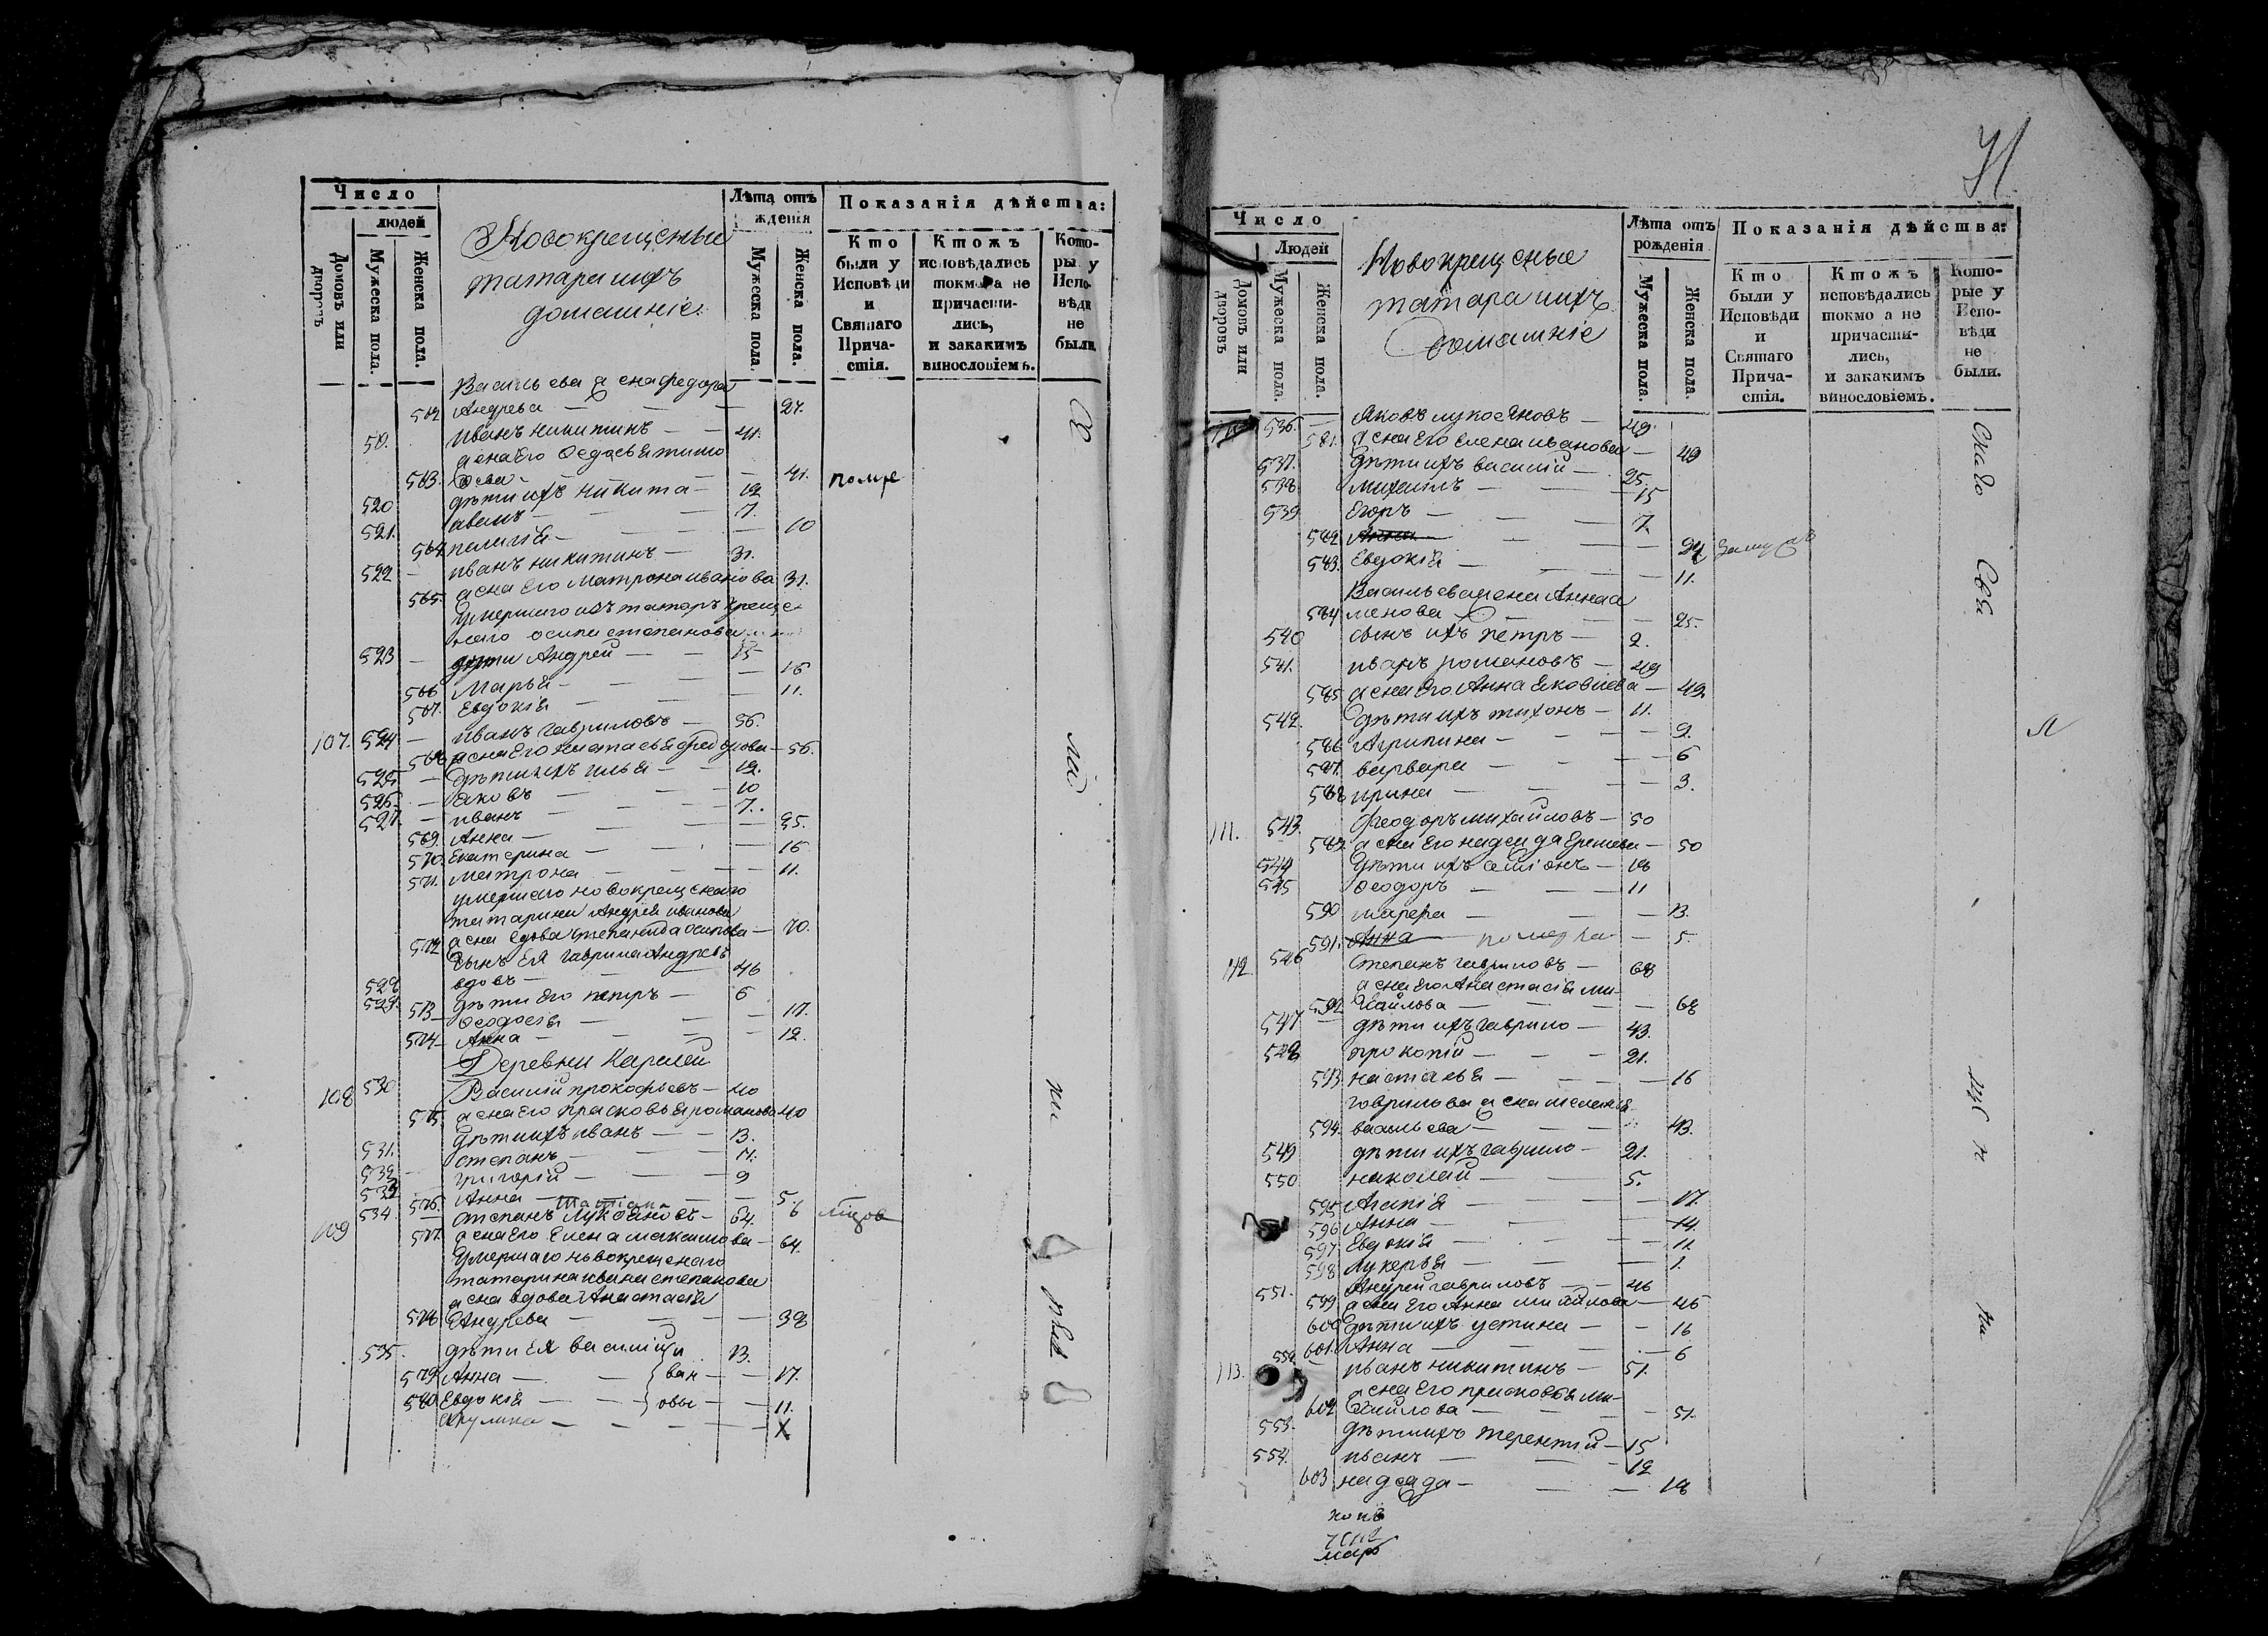 Число
людей
Домовъ или дворовъ
Мужеска пола.
Женска пола.
Новокрещеные
татара ихъ
домашніе.
Лѣта отъ
ждения
Мужеска пола.
Женска пола.
Показанія дѣйства:
Кто были у Исповѣди и Святаго Причастія.
Ктожъ исповѣдались токмо а не причастились, и закакимъ винословіемъ.
Которы у Исповѣди не были
Васильева жена федора
562 Андрева — 27.
Иванъ никитинъ — 41.
жена Его Федосья тимо
563. фева — 41. помре
520 дѣти ихъ никита — 12
521. иванъ — 7.
564 пелагія — 10
522 — иванъ никитинъ — 31.
565. жена Его Матрона иванова 31.
умершаго изъ татаръ креще
наго осипа степанова
523 — дѣти Андрей — 15
566 Марья — 16
567. Евдокія — 11.
107. 524 — иванъ гавриловъ — 56.
568 жена Его настасья федорова — 56.
525 — дѣти ихъ илья — 12.
526. — яковъ — 10
527. — иванъ — 7.
569. Анна — 35.
570. Екатерина — 16
571. матрона — 11.
умершаго новокрещенаго
татарина Андрея иванова
572 жена вдова степанида осипова — 70.
сынъ Ея гаврила Андревъ
528 вдовъ — 46
529. дѣти Его петръ — 6
573 — Федосья — 17.
574 — Анна — 12.
Деревни Карлей
108 530 Василій прокофьевъ — 40
575. жена Его прасковья романова 40
531. дѣти ихъ иванъ — 13.
532 степанъ — 11.
533 григорій — 9
576. Анна — 5
109 534. — степанъ Лукояновъ — 64. 6
577. жена Его Елена максимова — 64.
умершаго новокрещенаго
татарина ивана степанова
жена вдова Анастасія
578 Андрева — 38
535. дѣти Ея василій и 13.
579 Анна — ван — 17.
580 Евдокія — овы — 11.
Акулина — X
71
Число
Людей
Домовъ или дворовъ
Мужеска пола.
Женска пола.
Новокрещеные
татара ихъ
домашніе
Лѣта отъ
рожденія
Мужеска пола.
Женска пола.
Показанія дѣйства:
Кто были у Исповѣди и Святаго Причастія.
Ктожъ исповѣдались токмо а не причастились, и закакимъ винословіемъ.
Которые у Исповѣди не были.
536. — Яковъ лукояновъ — 49.
581. жена Его Елена иванова — 49
537. дѣти ихъ василій — 25.
538. михаилъ — 15
539 Егоръ — 7.
582 Анна — 24 замуж
583. Евдокія — 11.
Васильева жена Анна а
584 менова — 25.
540 сынъ ихъ петръ — 2.
541. иванъ романовъ — 49
585 жена Его Анна яковлева — 49.
542. дѣти ихъ тихонъ — 11.
586 Агрипина — 9.
587. варвара — 6
588 ирина — 3.
111. 543. Феодоръ михайловъ — 50
589 жена Его надежда Еремева — 50
544 дѣти ихъ семіонъ — 18
545 Феодоръ — 11
590 марфа — 13.
591. Анна — померла — 5.
112 546 Степанъ гавриловъ — 68
жена Его Анастасія ми-
592 хайлова — 68
547 — дѣти ихъ гаврило — 43.
548 прокопій — 21.
593 настасья — 16
гаврилова жена меланія
594. васильева — 43.
549 дѣти ихъ гаврило — 21.
550 николай — 5.
595 Агапія — 17.
596 Анна — 14.
597 Евдокія — 11
598 лукерья — 1.
551. Андрей гавриловъ — 46
599 жена Его Анна михайлова — 46
600 дѣти ихъ устина — 16
601. Анна — 6
113. 552 — иванъ никитинъ — 51.
жена Его прасковья ми-
602 хайлова — 51.
553. дѣти ихъ терентій — 15
554. иванъ — 12
603 надежда — 18